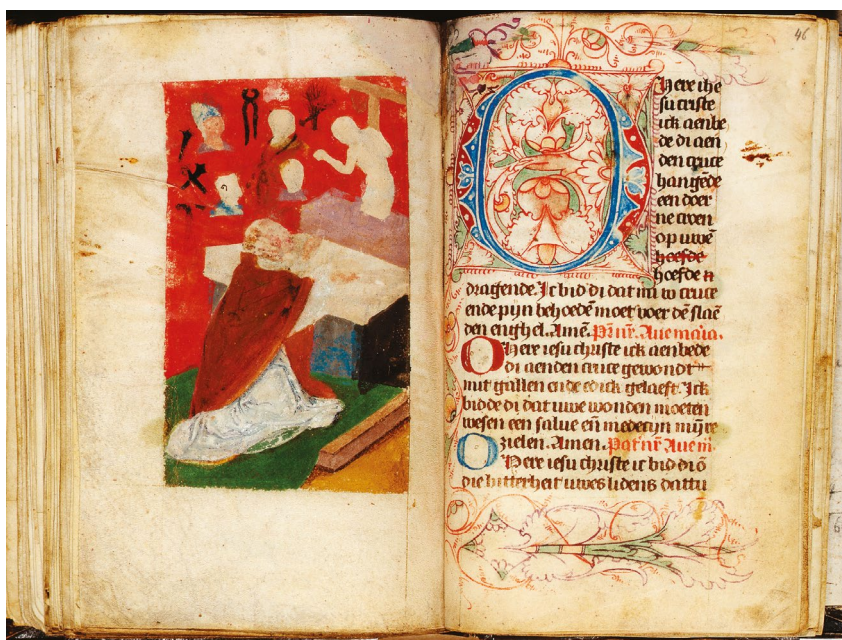 46
O Here ihe
su criste
ick aenbe
de di aen
den cruce
hangēde
een doer
ne croen
op uwē
hoefde
hoefde
dragende. Ic bid di dat mi w cruce
ende pijn behoedē moet voer dē slaē
den enghel. Amē. Pr̄ nr̄. Aue maria.
O here iesu christe ick aenbede
di aenden cruce gewondt
mit gallen ende edick gelaeft. Ick
bidde di dat uwe wonden moeten
wesen een salue en̄ medecijn mijnre
zielen. Amen. Pat' nr̄ Aue m̄.
O Here iesu christe ic bid di ō
die bitterheit uwes lidens dattu